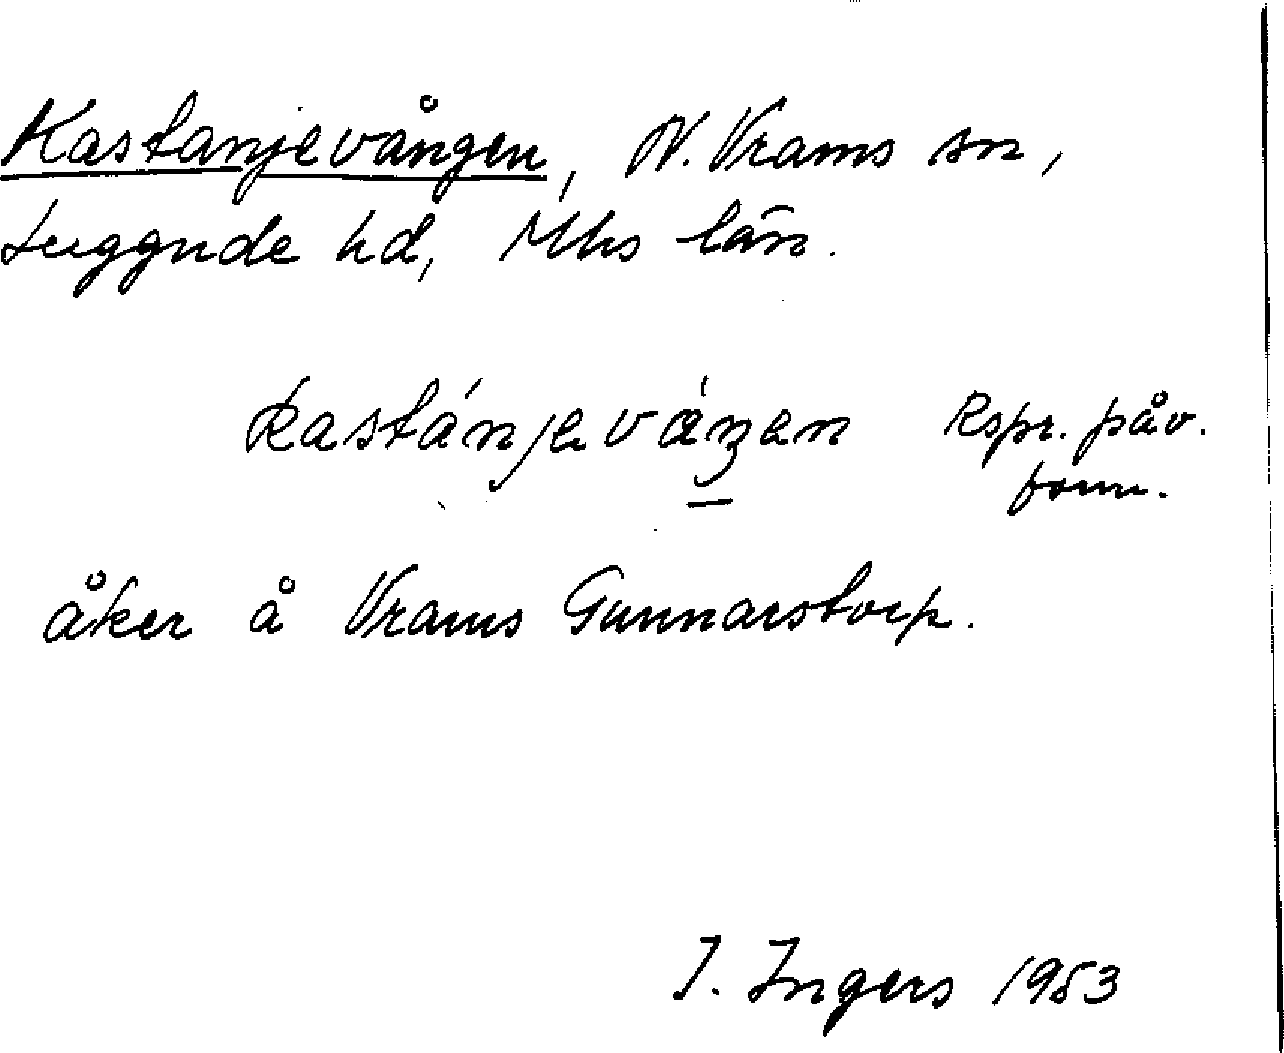 Kastanjevången, N. Vrams sn,
Luggude hd, Mhs län.
kastánjevá̱ŋen Rspr. påv.
form.
åker å Vrams Gunnarstorp.
I. Ingers 1953